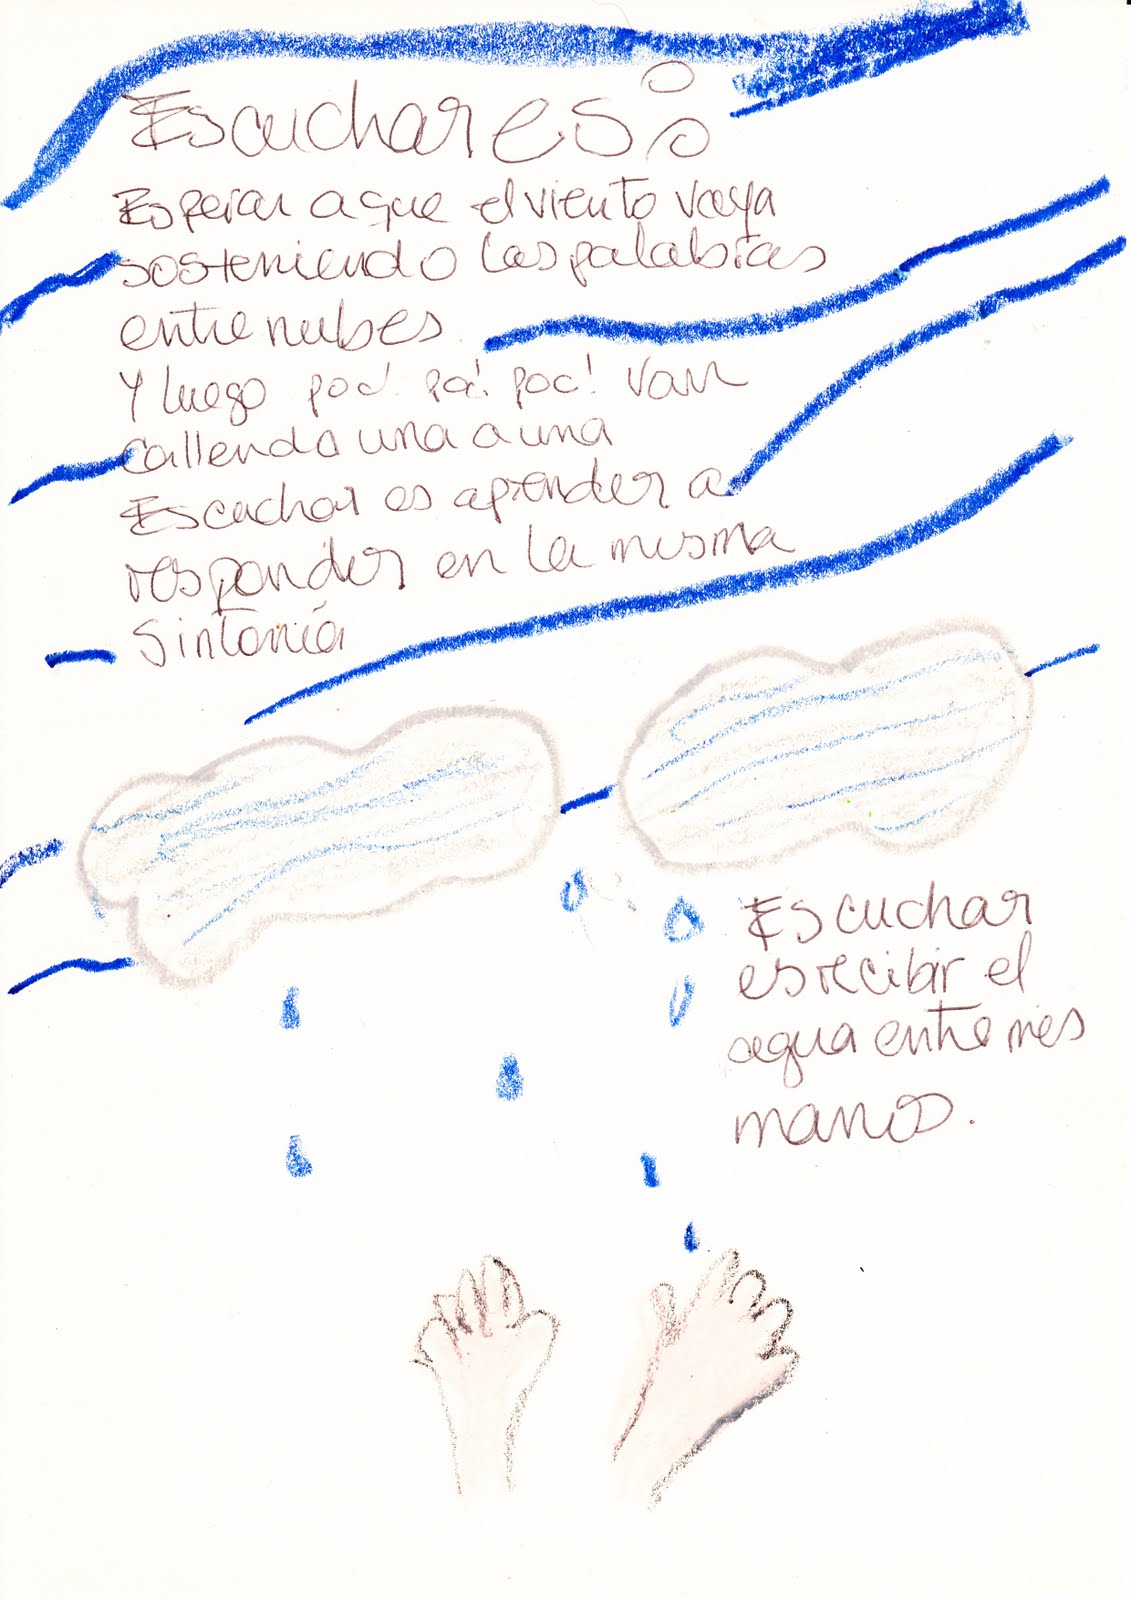 Escuchar es:
Esperar a que el viento vaya
sosteniendo las palabras
entre nubes
Y luego poc! pa! poc! van
callendo una a una
Escuchar es aprender a
responder en la misma
sintonía
Escuchar
es recibir el
agua entre mis
manos.